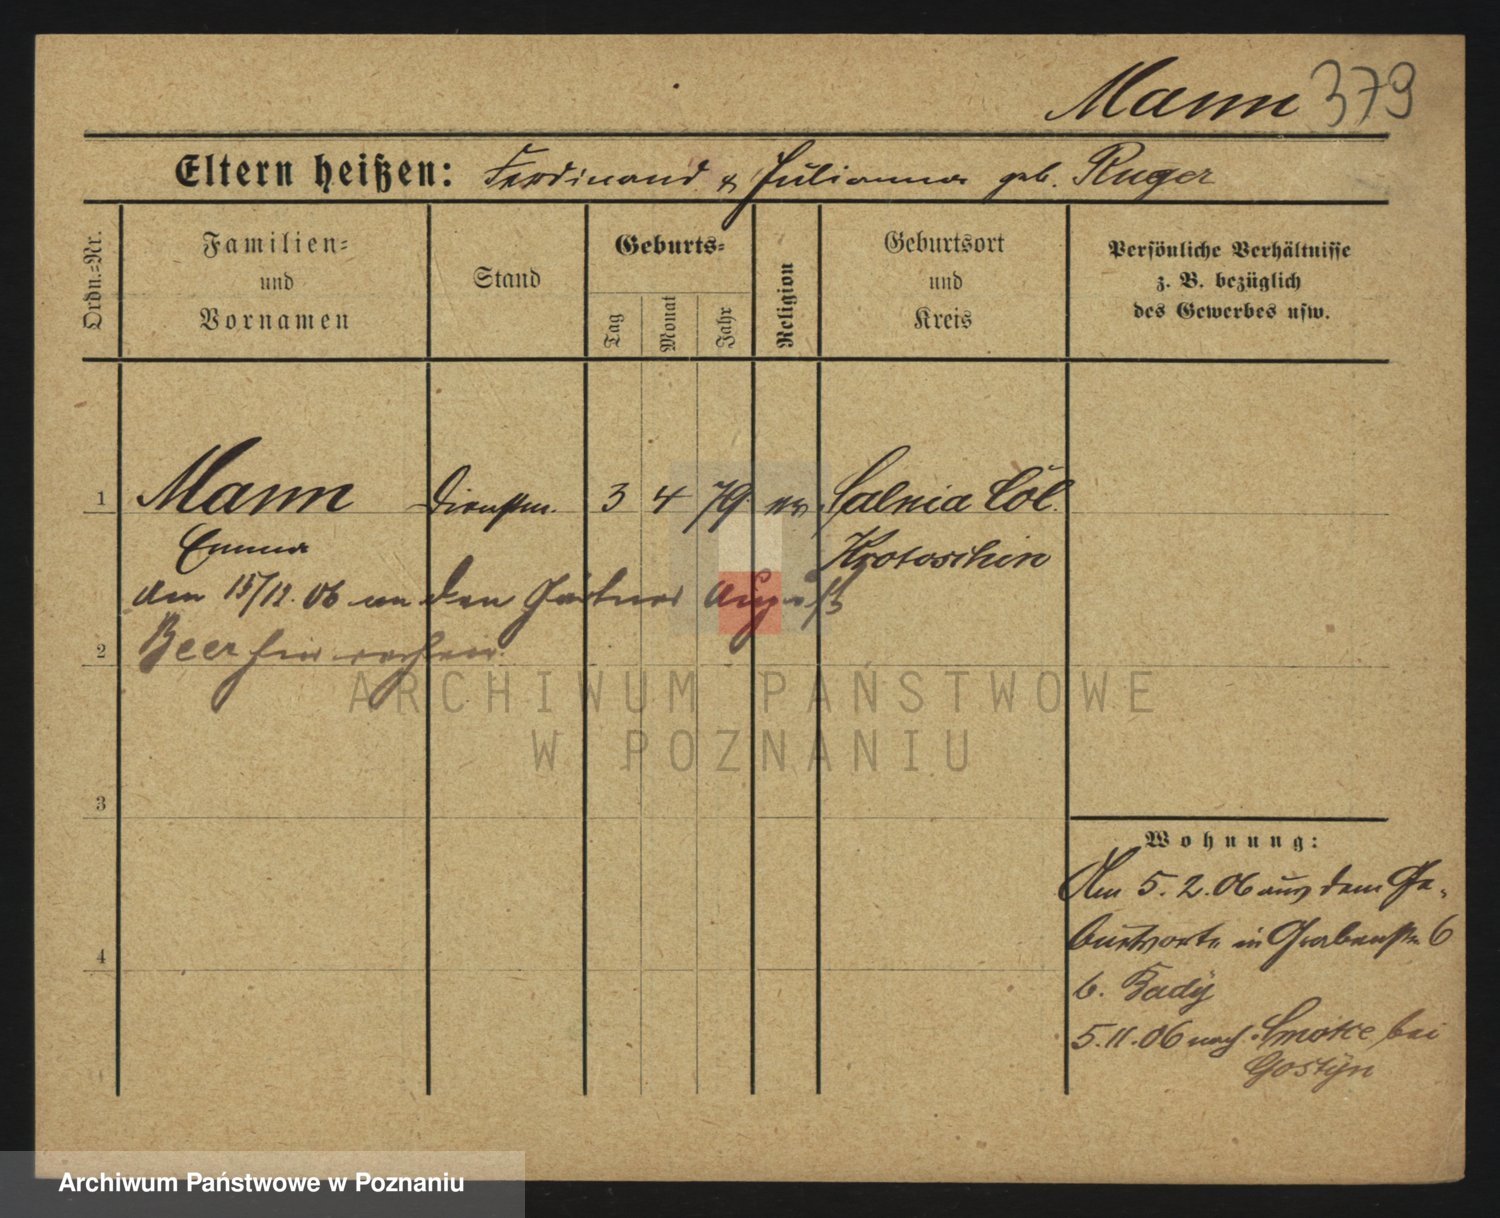 Mann 379
Eltern heißen: Ferdinand & Julianna geb. Ruger
Ordn.=Nr.
Familien=
und
Vornamen
Stand
Geburts=
Tag
Monat
Jahr
Religion
Geburtsort
und
Kreis
Persönliche Verhältnisse
z. B. bezüglich
des Gewerbes usw.
1 Mann Dienstm. 3 4 79 ev. Salnia Col.
Emma Krotoschin
am 15/12. 06 an den Gärtner August
2 Beer
3
4
Wohnung:
Am 5. 2. 06 aus dem Ge-
burtsorte in Grabenstr. 6
b. Bady
5. 11. 06 nach Smolice bei
Gostyn
ARCHIWUM PAŃSTWOWE
W POZNANIU
Archiwum Państwowe w Poznaniu